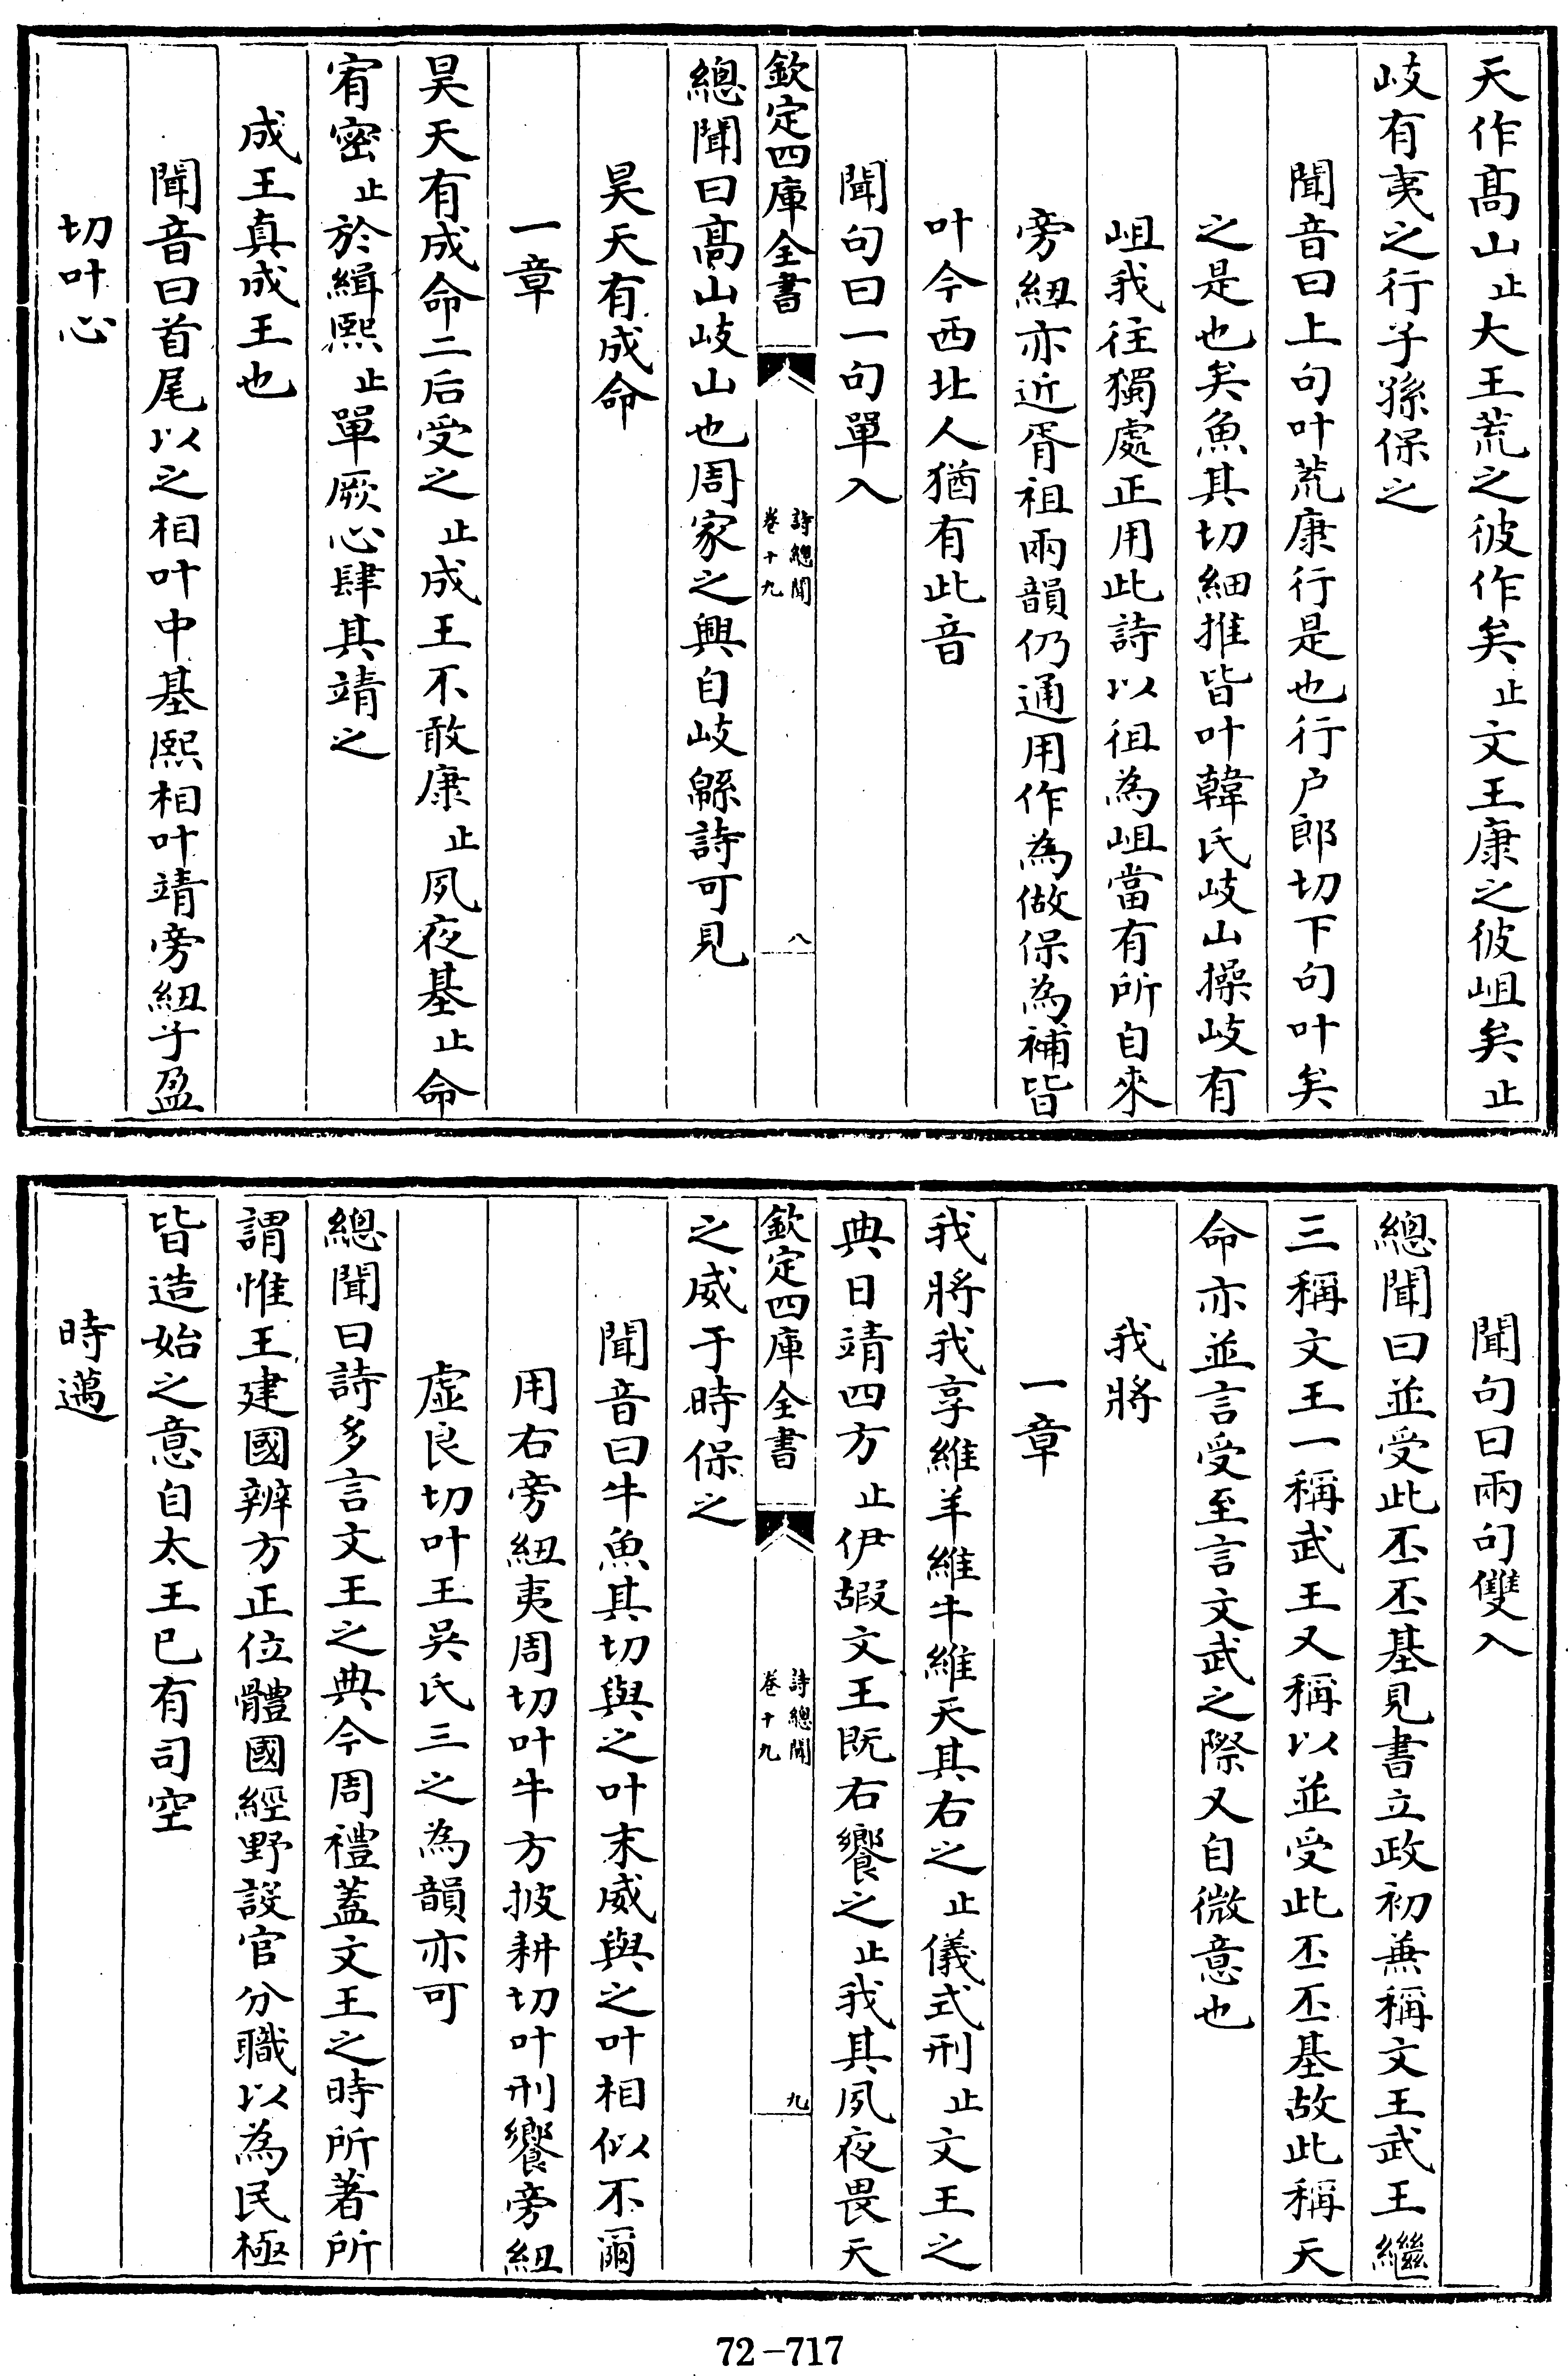 天作髙山止大王荒之彼作矣止文王康之彼岨矣止
岐有夷之行子孫保之
聞音曰上句叶荒康行是也行户郎切下句叶矣
之是也矣魚其切細推皆叶韓氏岐山操岐有
岨我往獨處正用此詩以徂為岨當有所自來
旁紐亦近胥祖兩韻仍通用作為做保為補皆
叶今西北人猶有此音
聞句曰一句單入
欽定四庫全書
詩總聞
卷十九
八
總聞曰髙山岐山也周家之興自岐緜詩可見
昊天有成命
一章
昊天有成命二后受之止成王不敢康止夙夜基止命
宥密止於緝熙止單厥心肆其靖之
成王真成王也
聞音曰首尾以之相叶中基熙相叶靖旁紐子盈
切叶心
聞句曰兩句雙入
總聞曰並受此丕丕基見書立政初兼稱文王武王繼
三稱文王一稱武王又稱以並受此丕丕基故此稱天
命亦並言受至言文武之際又自微意也
我將
一章
我將我享維羊維牛維天其右之止儀式刑止文王之
典日靖四方止伊嘏文王既右饗之止我其夙夜畏天
欽定四庫全書
詩總聞
卷十九
九
之威于時保之
聞音曰牛魚其切與之叶末威與之叶相似不爾
用右旁紐夷周切叶牛方披耕切叶刑饗旁紐
虛良切叶王吳氏三之為韻亦可
總聞曰詩多言文王之典今周禮蓋文王之時所著所
謂惟王建國辨方正位體國經野設官分職以為民極
皆造始之意自太王已有司空
時邁
72-717